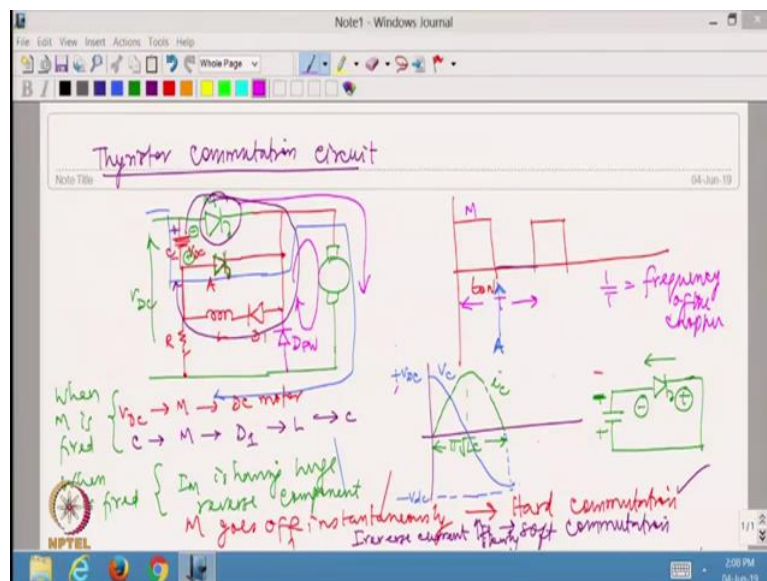 Note1 - Windows Journal
File Edit View Insert Actions Tools Help
Whole Page
B I
Thyristor commutation circuit
Note Title
04-Jun-19
VDC
C
VDC
A
R
L
D1
DFW
M
tON
T
A
1/T = frequency of the chopper
+VDC
VC
iC
π√LC
-Vdc
When M is fired
VDC → M → DC motor
C → M → D1 → L → C
When
fired
IM is having huge reverse component
M goes off instantaneously → Hard commutation
Soft commutation
NPTEL
1/1
2:08 PM
04-Jun-19